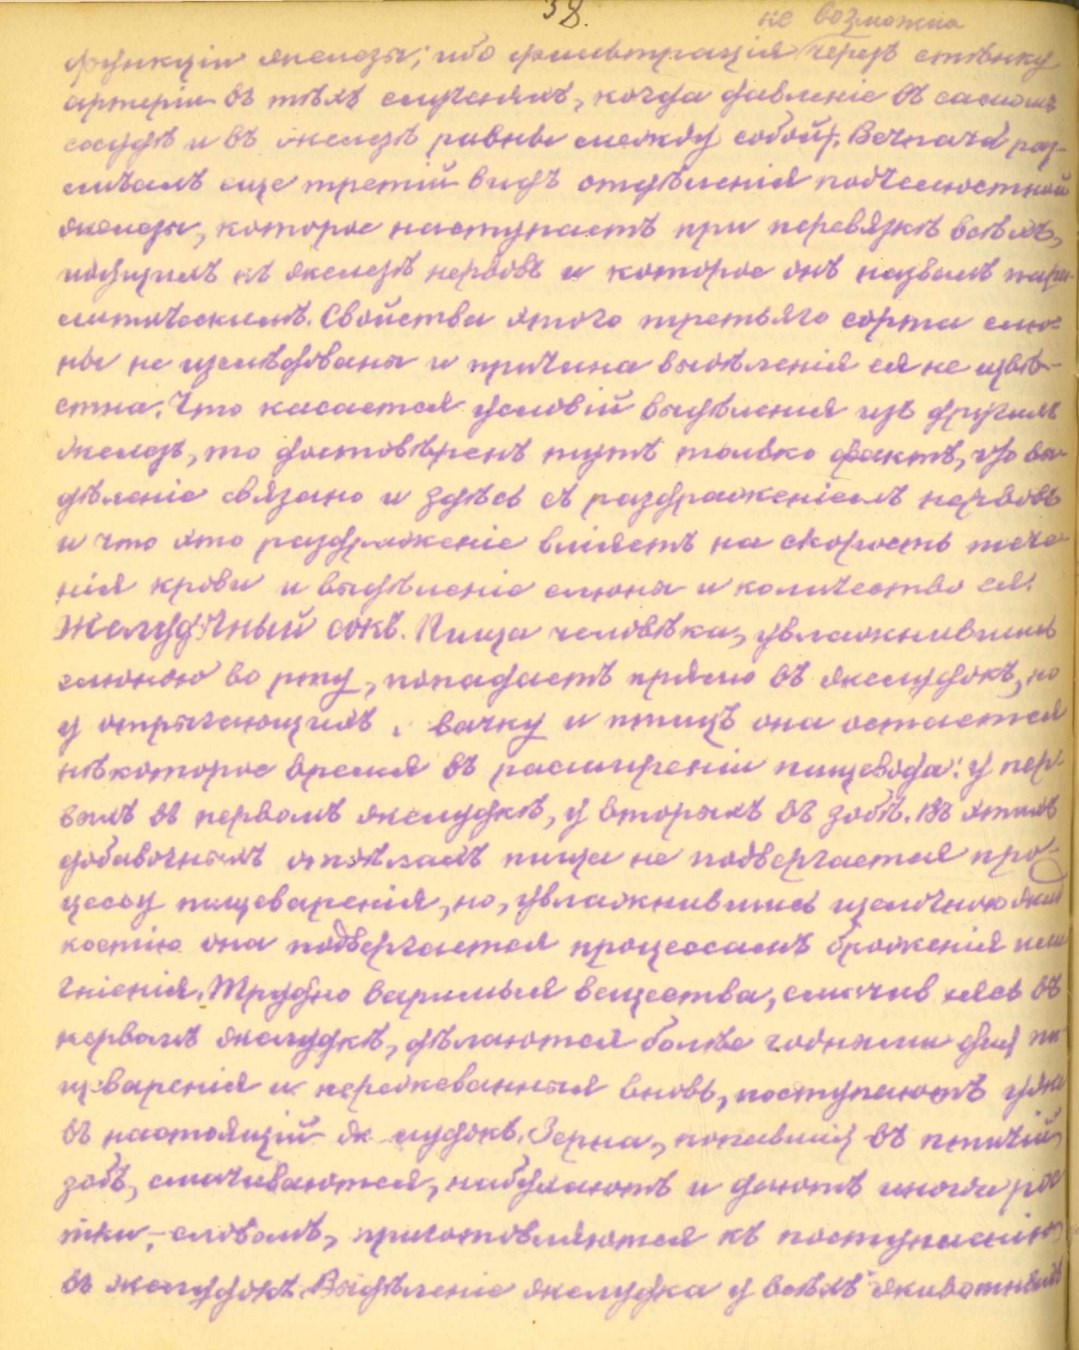 38.
не возможна
функціи железы; ибо фильтрація черезъ стѣнку
артеріи въ тѣхъ случаяхъ, когда давленіе въ самомъ
сосудѣ и въ железѣ равны между собой. Вечпачи раз-
личалъ еще третій видъ отдѣленія подчелюстной
железы, которое наступаетъ при перевязкѣ всѣхъ,
идущихъ къ железѣ нервовъ и которое онъ назвалъ пара-
литическимъ. Свойства этого третьяго сорта слю-
ны не изслѣдованы и причина выдѣленія ея не извѣ-
стна. Что касается условій выдѣленія изъ другихъ
железъ, то достовѣренъ тутъ только фактъ, что вы-
дѣленіе связано и здѣсь съ раздраженіемъ нервовъ
и что это раздраженіе вліяетъ на скорость тече-
нія крови и выдѣленіе слюны и количество ея.
Желудочный сокъ. Пища человѣка, увлажнившись
слюною во рту, попадаетъ прямо въ желудокъ, но
у отрыгающихъ жвачку и птицъ она остается
нѣкоторое время въ расширеніи пищевода: у пер-
выхъ въ первомъ желудкѣ, у вторыхъ въ зобѣ. Въ этихъ
добавочныхъ отдѣлахъ пища не подвергается про-
цессу пищеваренія, но, увлажнившись щелочною жид
костію она подвергается процессамъ броженія или
гніенія. Трудно варимыя вещества, смочив шись въ
первомъ желудкѣ, дѣлаются болѣе годными для пи
щеваренія и пережеванныя вновь, поступаютъ уже
въ настоящій же лудокъ. Зерна, попавшія въ птичій
зобъ, смачиваются, набухаютъ и даютъ иногда ро
стки,- словомъ, приготовляются къ поступленію
въ желудокъ. Выдѣленіе желудка у всѣхъ животныхъ